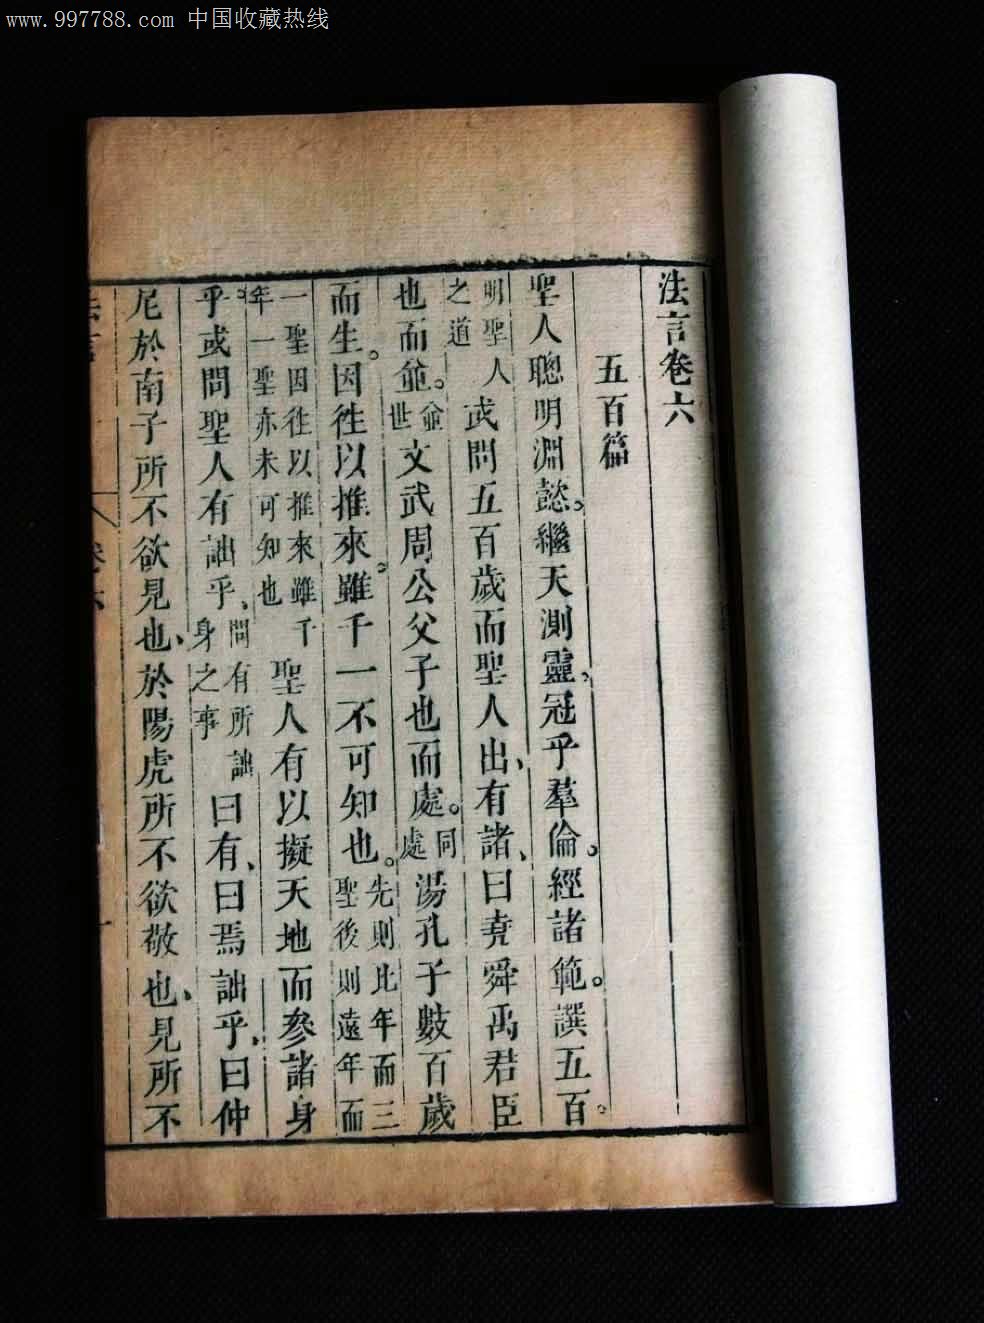 www.997788.com 中国收藏热线
法言卷六
五百篇
聖人聰明淵懿。繼天測靈。冠乎羣倫。經諸範。譔五百。
明聖人之道或問五百歲而聖人出、有諸、曰堯舜禹君臣
也而並。並世文武周公父子也而處。同處湯孔子數百歲
而生。因徃以推來。雖千一不可知也。先則比年而三聖後則遠年而
一聖因徃以推來雖千年一聖亦未可知也聖人有以擬天地而參諸身
乎或問聖人有詘乎、問有所詘身之事曰有、曰焉詘乎、曰仲
尼於南子所不欲見也、於陽虎所不欲敬也、見所不